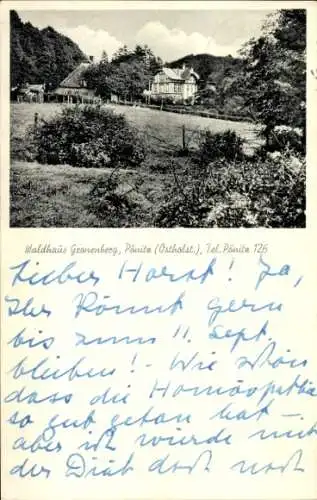 Waldhaus Gronenberg, Pönitz (Ostholst.), Tel. Pönitz 126
Lieber Horst! Ja,
Ihr könnt gern
bis zum 11. Sept.
bleiben! - Wie schön
dass die Homöopathie
so gut getan hat -
aber ich würde mit
der Diät doch noch